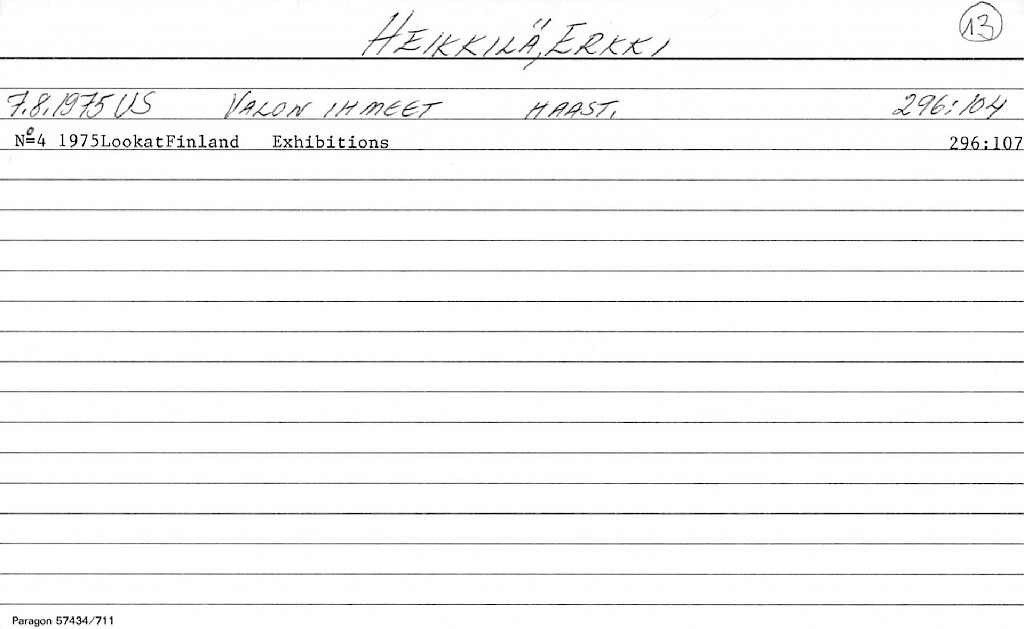 HEIKKILÄ, ERKKI 13
7.8.1975 US VALON IHMEET HAAST. 296:104
Nº4 1975LookatFinland Exhibitions 296:107
Paragon 57434/711